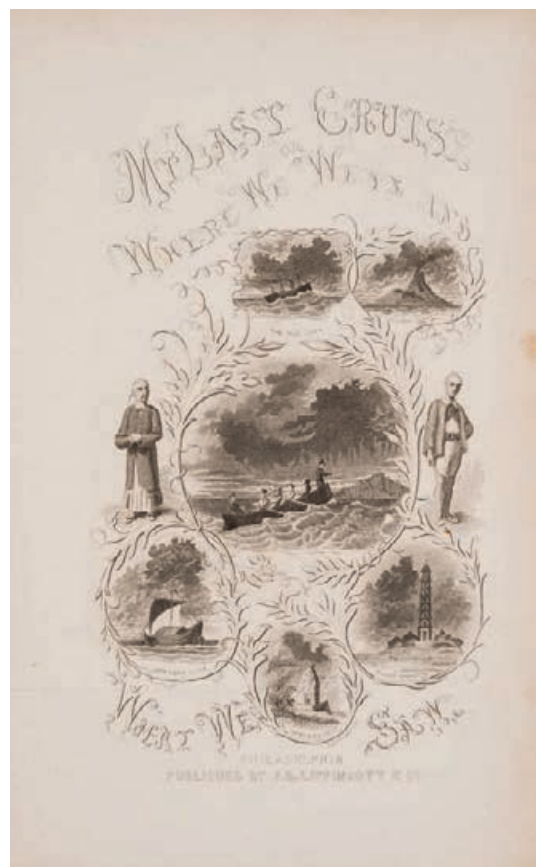 MY LAST CRUISE
OR
WHERE WE WENT AND
WHAT WE SAW
PHILADELPHIA
PUBLISHED BY J.B. LIPPINCOTT & CO